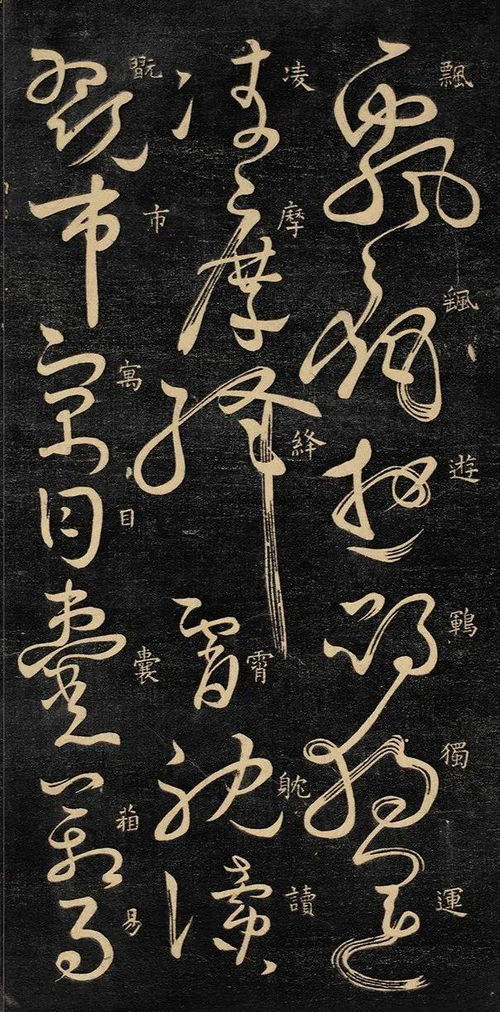 飄颻遊鶤獨運
凌摩絳霄躭讀
翫市寓目囊箱易